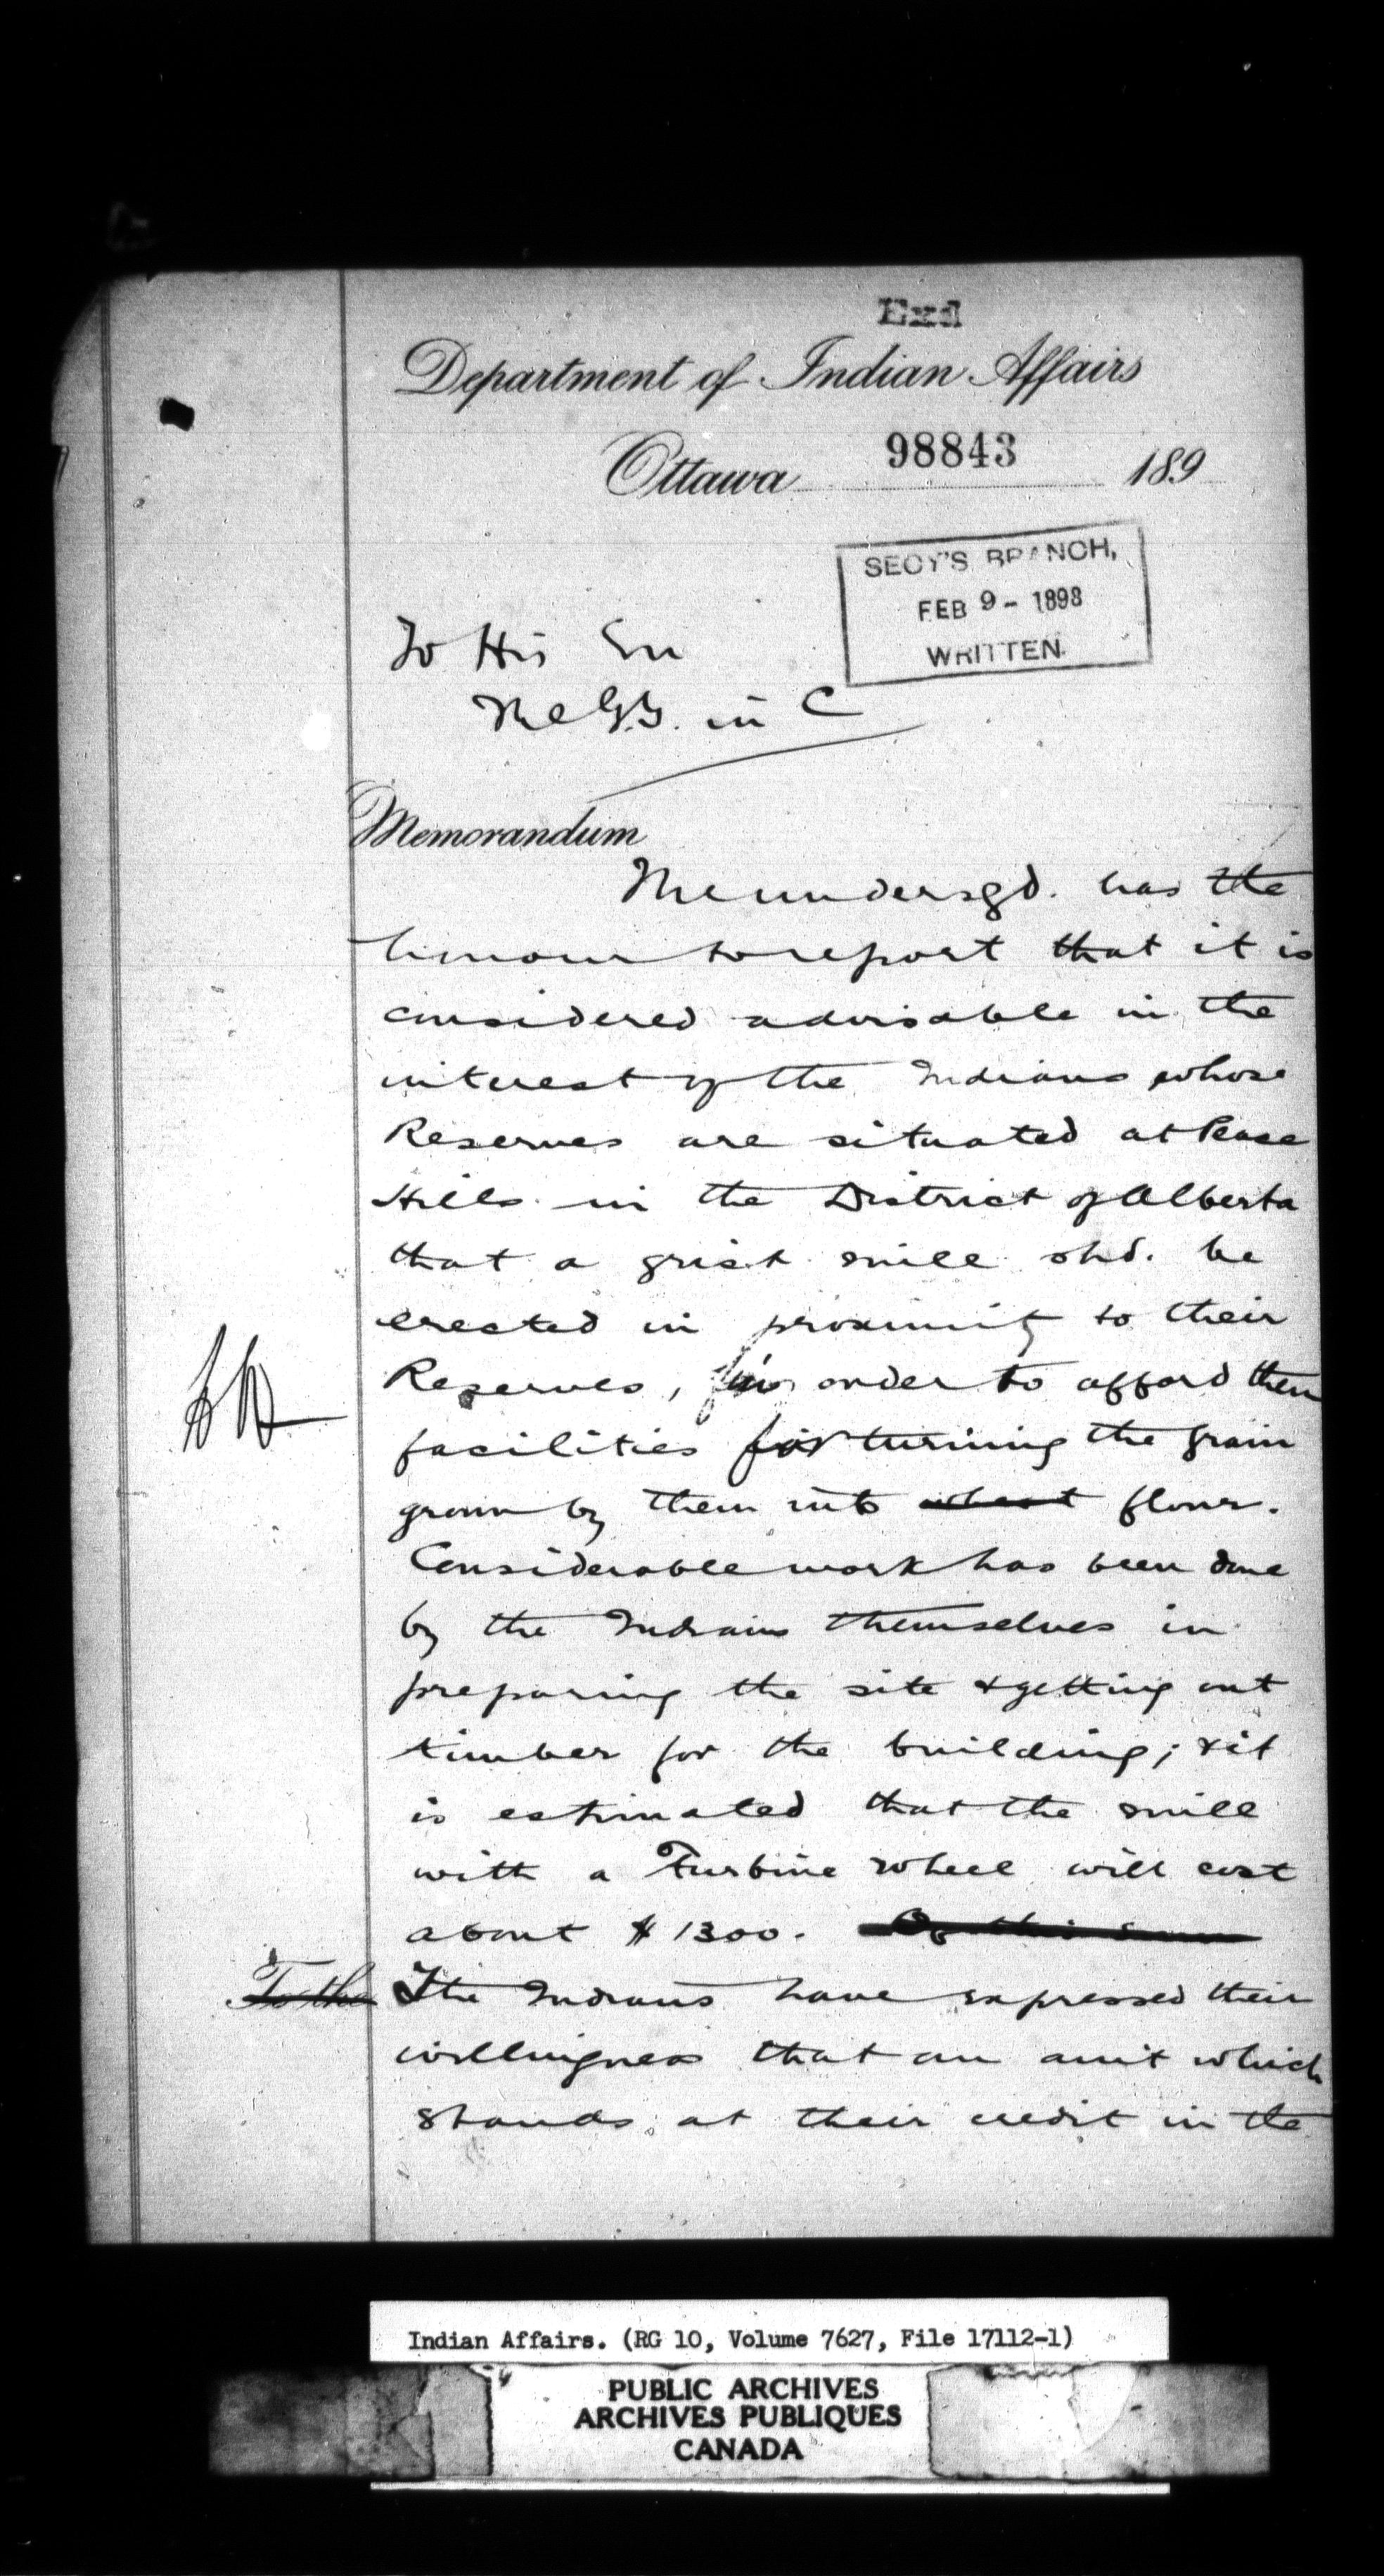 Exd
Department of Indian Affairs
Ottawa 98843 189
SECY'S BRANCH,
FEB 9 - 1898
WRITTEN.
To His Ex
The G.G. in C
Memorandum
The undersgd. has the
honour to report that it is
considered advisable in the
interest of the Indians whose
Reserves are situated at Peace
Hills in the District of Alberta
that a grist mill shd. be
erected in proximity to their
Reserves, in order to afford them
facilities for turning the grain
grown by them into wheat flour.
Considerable work has been done
by the Indians themselves in
preparing the site & getting out
timber for the building; & it
is estimated that the mill
with a Turbine wheel will cost
about $1300. Of this sum
To the The Indians have expressed their
willingness that an amt which
stands at their credit in the
Indian Affairs. (RG 10, Volume 7627, File 17112-1)
PUBLIC ARCHIVES
ARCHIVES PUBLIQUES
CANADA